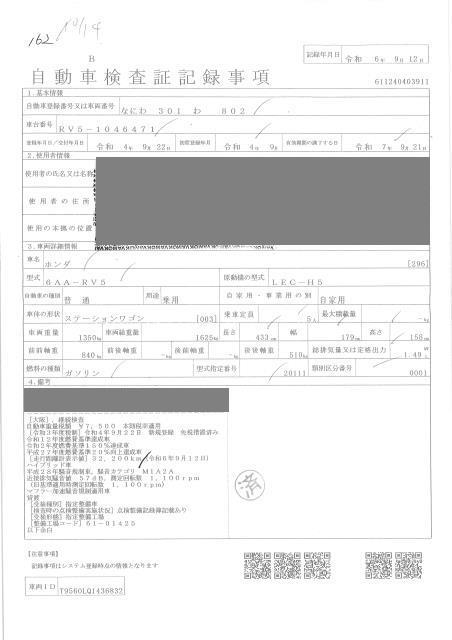 162 10/14
B
記録年月日 令和 6年 9月 12日
自動車検査証記録事項
611240403911
1.基本情報
自動車登録番号又は車両番号 なにわ 301 わ 802
車台番号 RV5-1046471
登録年月日/交付年月日 令和 4年 9月 22日 初度登録年月 令和 4年 9月 有効期間の満了する日 令和 7年 9月 21日
2.使用者情報
使用者の氏名又は名称
使用者の住所
使用の本拠の位置
3.車両詳細情報
車名 ホンダ [296]
型式 6AA-RV5 原動機の型式 LEC-H5
自動車の種別 普通 用途 乗用 自家用・事業用の別 自家用
車体の形状 ステーションワゴン [003] 乗車定員 5人 最大積載量 -kg
車両重量 1350kg 車両総重量 1625kg 長さ 433cm 幅 179cm 高さ 158cm
前前軸重 840kg 前後軸重 -kg 後前軸重 -kg 後後軸重 510kg 総排気量又は定格出力 1.49 kW L
燃料の種類 ガソリン 型式指定番号 20111 類別区分番号 0001
4.備考
[大阪],継続検査
自動車重量税額 ¥7,500 本則税率適用
[令和3年度税制]令和4年9月22日 新規登録 免税措置済み
令和12年度燃費基準達成車
令和2年度燃費基準150%達成車
平成27年度燃費基準20%向上達成車
[走行距離計表示値]32,200km(令和6年9月12日)
ハイブリッド車
平成28年騒音規制車,騒音カテゴリ M1A2A
近接排気騒音値 57dB,測定回転数 1,100rpm
(旧基準適用時測定回転数 1,100rpm)
マフラー加速騒音規制適用車
[受検種別]指定整備車
[検査時の点検整備実施状況]点検整備記録簿記載あり
[受検形態]指定整備工場
[整備工場コード]61-01425
以下余白
済
【注意事項】
記録事項はシステム登録時点の情報となります
車両ID T9560LQ1436832